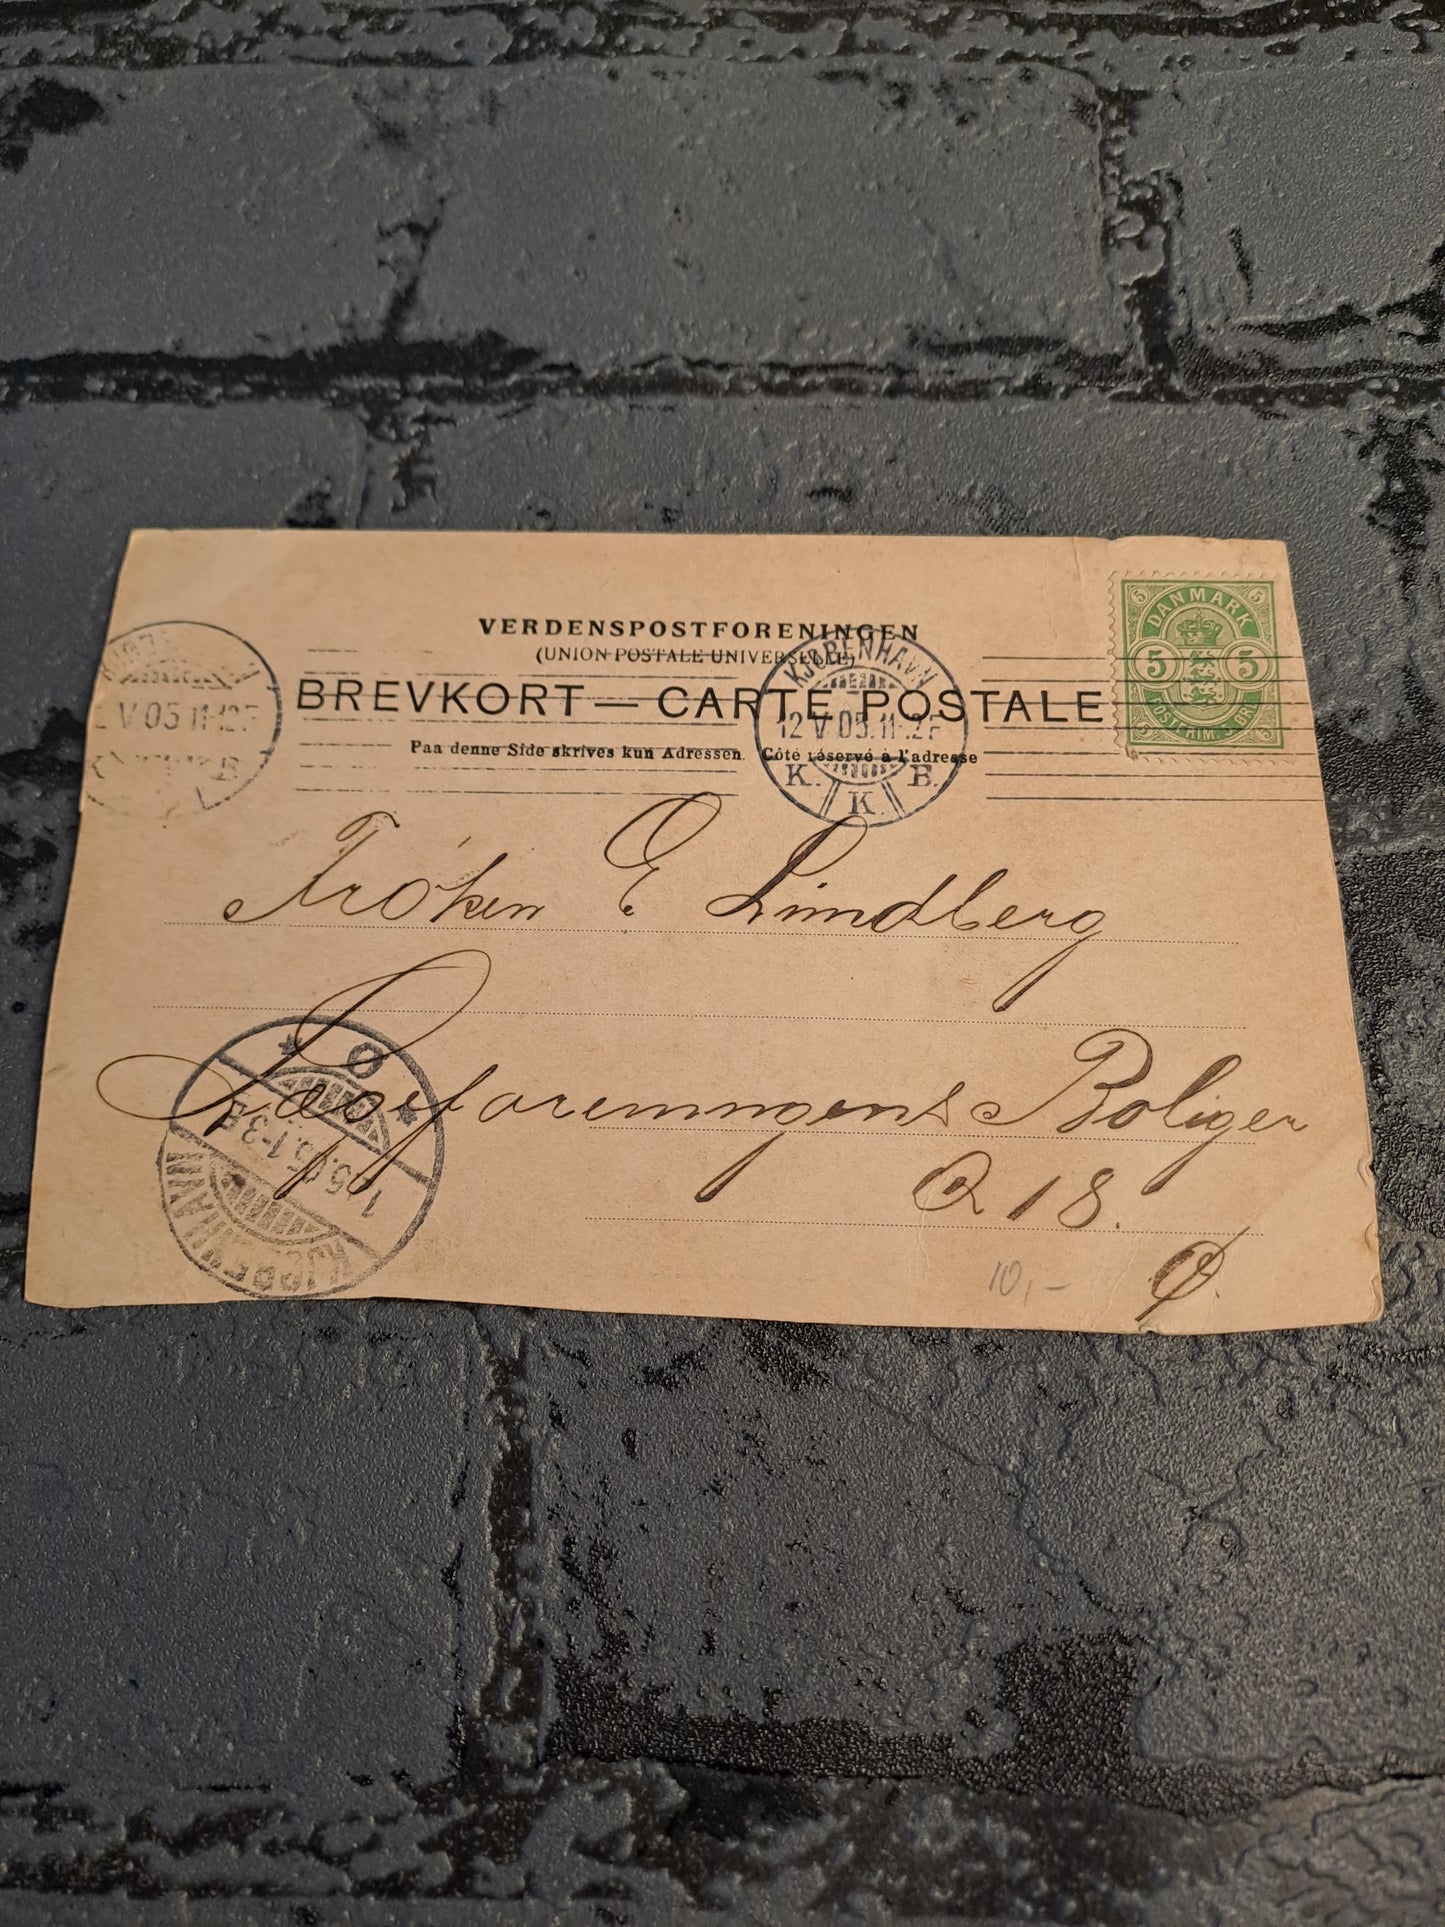 VERDENSPOSTFORENINGEN
(UNION POSTALE UNIVERSELLE)
BREVKORT — CARTE POSTALE
Paa denne Side skrives kun Adressen. Côté réservé à l'adresse
5 5
DANMARK
5 5
POSTFRIM. 5 ØR.
5 5
KJØBENHAVN
12 V 05. 11-12F
K. K. B.
KJØB
V 05 11-12F
B
Frøken E Lindberg
Lægeforeningens Boliger
Q 18.
Ø.
10,-
* Ø *
12.5.05.1-3E
KJØBENHAVN